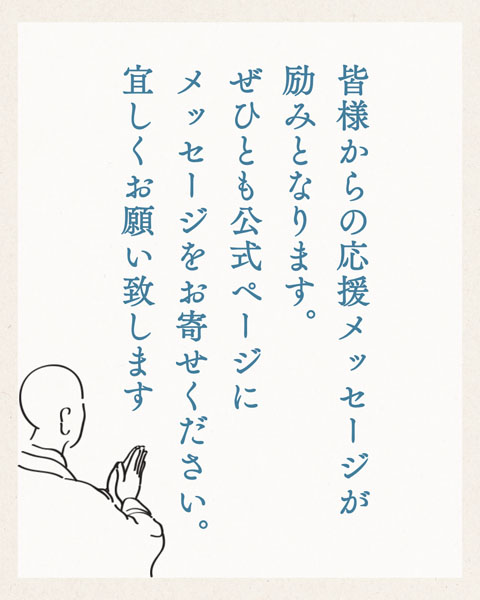 皆様からの応援メッセージが
励みとなります。
ぜひとも公式ページに
メッセージをお寄せください。
宜しくお願い致します